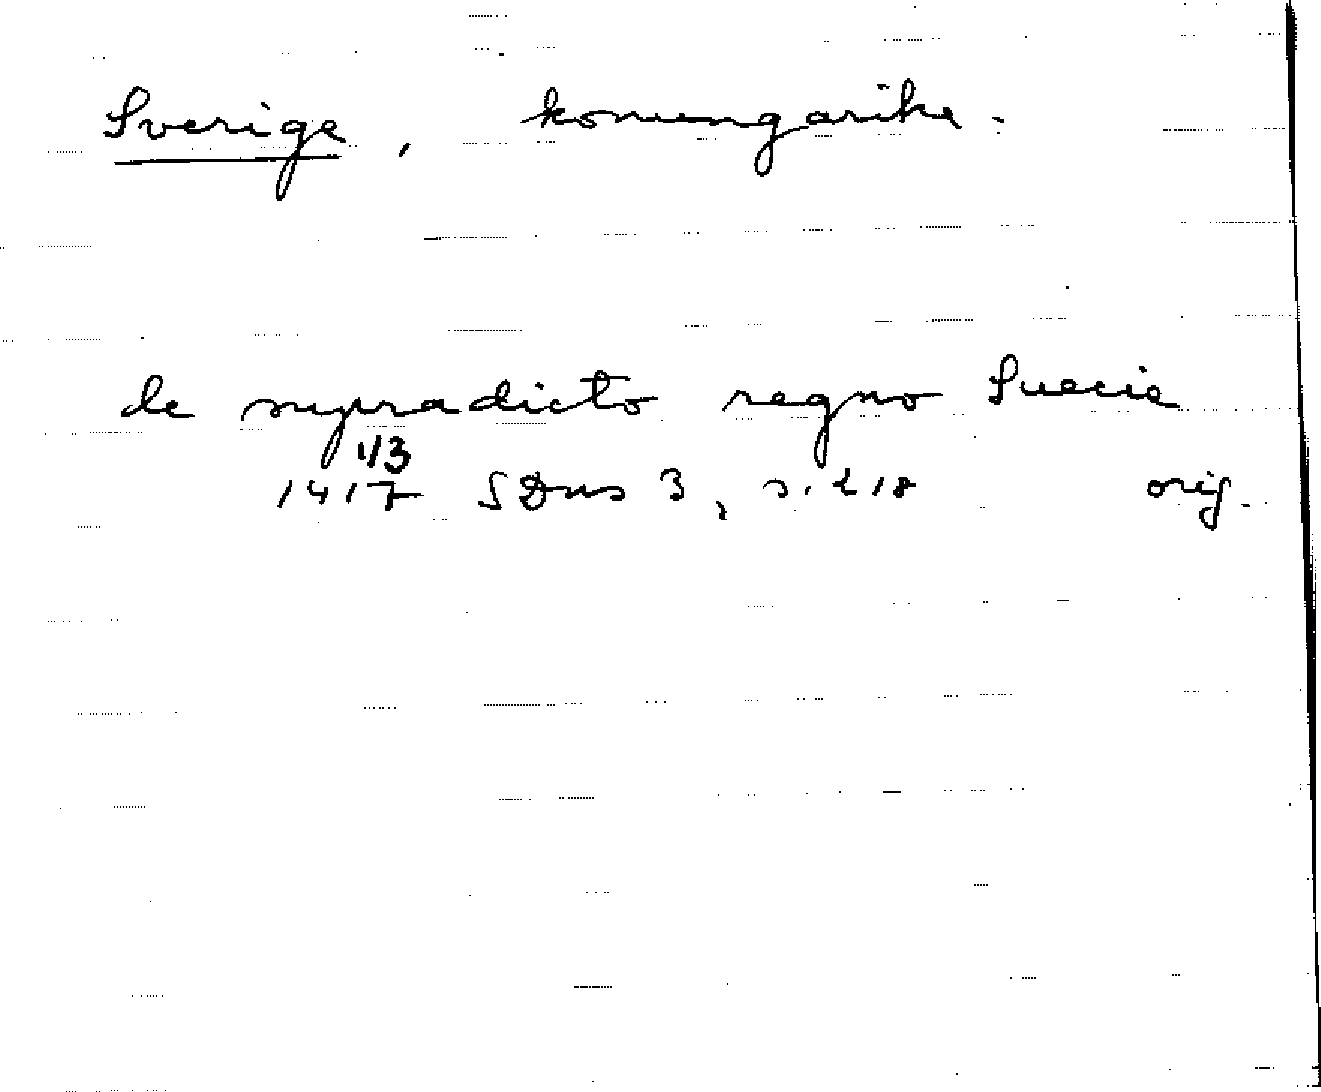 Sverige, konungarike.
de supradicto regno Suecie
1/3
1417 SDns 3, s. 218 orig.